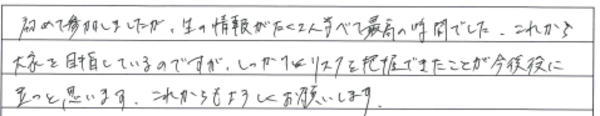 初めて参加しましたが、生の情報がたくさん学べて最高の時間でした。これから
大家を目指しているのですが、しっかりリスクを把握できたことが今後役に
立つと思います。これからもよろしくお願いします。